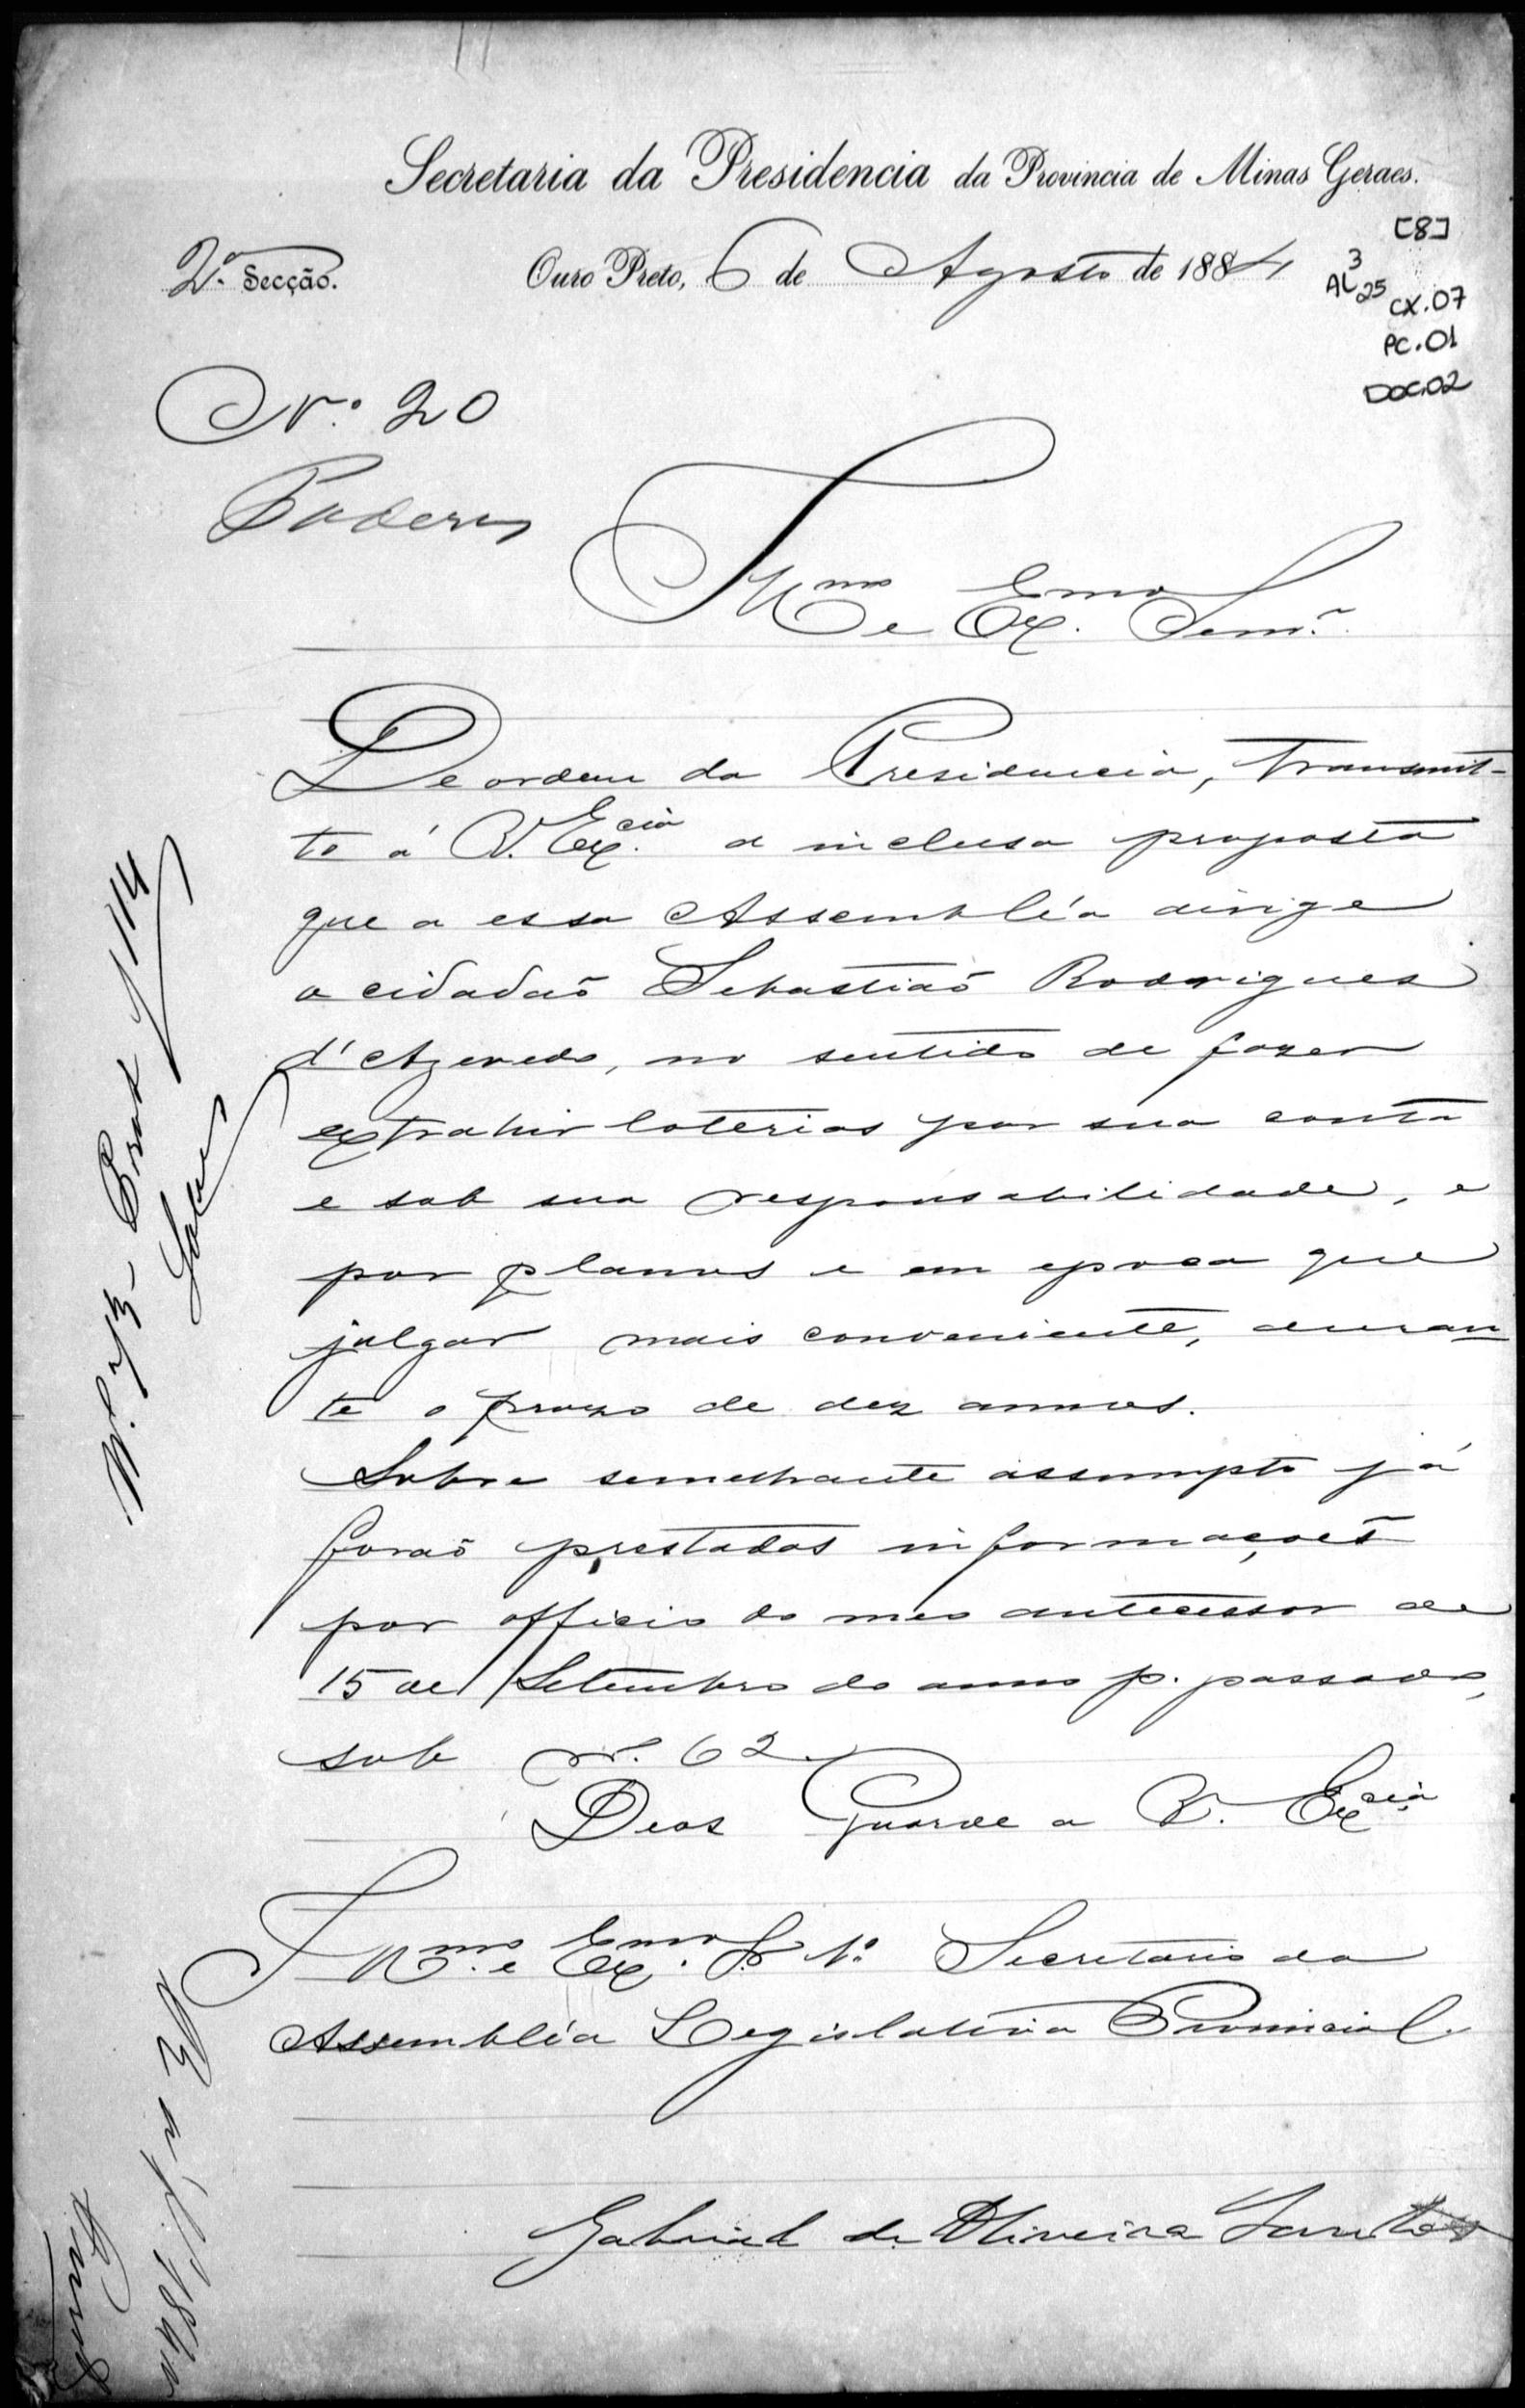 Secretaria da Presidencia da Provincia de Minas Geraes.
[8]
2ª Secção.
Ouro Preto, 6 de Agosto de 1884
AL 3 25 CX.07
PC.01
DOC.02
Nº 20
Poderes
Illmo e Exmo Senr.
De ordem da Presidencia, transmit-
to á V. Excia a inclusa proposta
que a essa Assembléa dirige
o cidadaõ Sebastiaõ Rodrigues
d'Azevedo, no sentido de fazer
extrahir loterias por sua conta
e sob sua responsabilidade, e
por planos e em epoca que
julgar mais conveniente, duran
te o prazo de dez annos.
Sobre semelhante assumpto já
foraõ prestadas informações
por officio do meu antecessor de
15 de Setembro do anno p. passado,
sob n. 62.
Deos Guarde a V. Excia
Illmo e Exmo Sr 1º Secretario da
Assembléa Legislativa Provincial.
Gabriel de Oliveira Santos